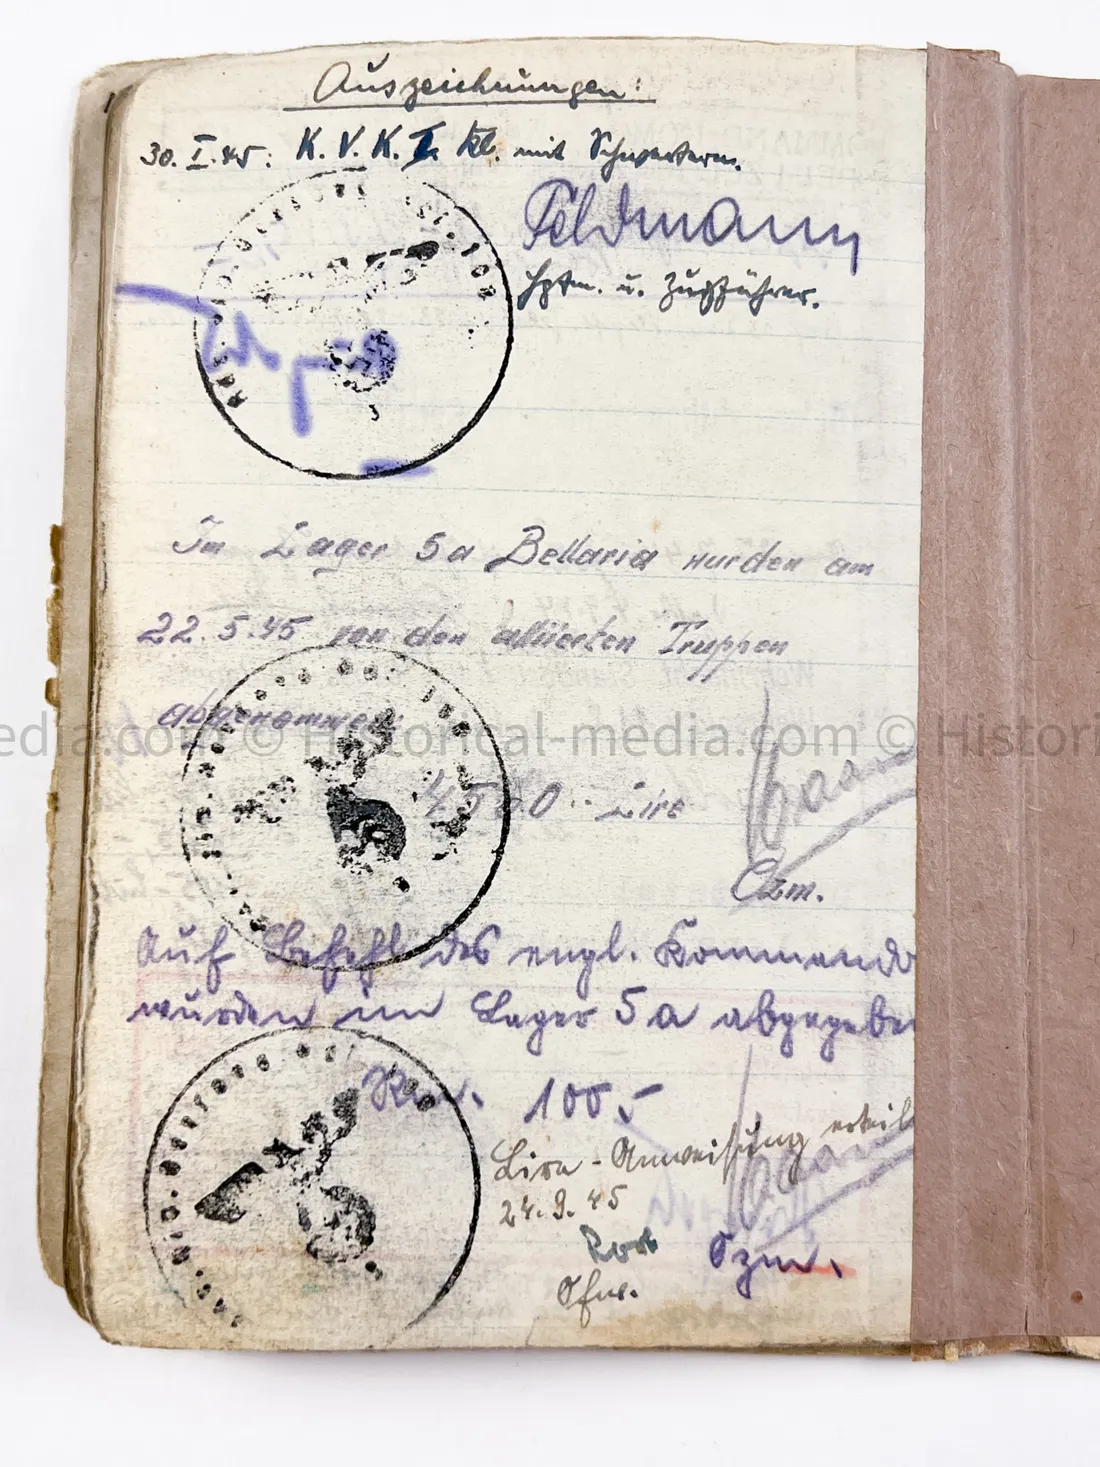 Auszeichnungen:
30. I. 45: K. V. K. Kl. mit Schwertern.
Feldmann
Hptm. u. Zugführer.
Im Lager 5a Bellaria wurden am
22.5.45 von den alliierten Truppen
abgenommen:
Lire
Ozm.
Auf Befehl des engl. Kommando
wurden im Lager 5a abgegeben
Rm. 100,-
Lire-Anweisung erteil
24.9.45
Ozm.
Ofw.
edia.com © Historical-media.com © Histori